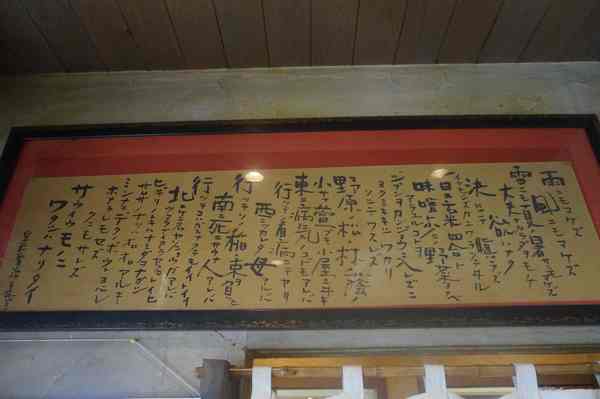 雨ニモマケズ
風ニモマケズ
雪ニモ夏ノ暑サニモマケヌ
丈夫ナカラダヲモチ
慾ハナク
決シテ瞋ラズ
イツモシヅカニワラッテヰル
一日ニ玄米四合ト
味噌ト少シノ野菜ヲタベ
アラユルコトヲ
ジブンヲカンジョウニ入レズニ
ヨクミキキシワカリ
ソシテワスレズ
野原ノ松ノ林ノ蔭ノ
小サナ萱ブキノ小屋ニヰテ
東ニ病気ノコドモアレバ
行ッテ看病シテヤリ
西ニツカレタ母アレバ
行ッテソノ稲ノ束ヲ負ヒ
南ニ死ニサウナ人アレバ
行ッテコハガラナクテモイヽトイヒ
北ニケンクヮヤソショウガアレバ
ツマラナイカラヤメロトイヒ
ヒデリノトキハナミダヲナガシ
サムサノナツハオロオロアルキ
ミンナニデクノボウトヨバレ
ホメラレモセズ
クニモサレズ
サウイウモノニ
ワタシハナリタイ